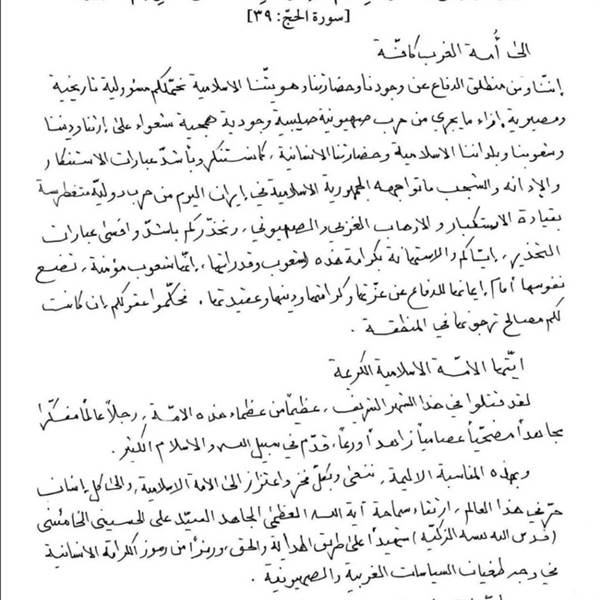 [سورة الحجّ: ٣٩]
الى أُمة الغرب كافّة
إننا ومن منطلق الدفاع عن وجودنا وحضارتنا وهويتنا الاسلامية نحمّلكم مسؤولية تاريخية
ومصيرية إزاء ما يجري من حرب صهيونية صليبية وجودية همجية شعواء على إرثنا وديننا
وشعوبنا وبلداننا الاسلامية وحضارتنا الانسانية، كما نستنكر وبأشدّ عبارات الاستنكار
والإدانة والشجب ما تواجهه الجمهورية الاسلامية في إيران اليوم من حرب دوليّة متغطرسة
بقيادة الاستكبار والارهاب الغربي والصهيوني، ونحذّركم بأشدّ وأقسى عبارات
التحذير، إيّاكم والاستهانة بكرامة هذه الشعوب وقدراتها، إنها شعوب مؤمنة، تضع
نفوسها أمام إيمانها للدفاع عن عزّتها وكرامتها ودينها وعقيدتها. فحكّموا عقولكم إن كانت
لكم مصالح ترجونها في المنطقة.
ايّتها الامّة الاسلامية الكريمة
لقد قتلوا في هذا الشهر الشريف، عظيماً من عظماء هذه الامّة، رجلاً عالماً مفكّراً
مجاهداً مضحّياً عصامياً زاهداً ورعاً، قدّم في سبيل الله والاسلام الكثير.
وبهذه المناسبة الاليمة، ننعى وبكلّ فخر واعتزاز الى الامة الاسلامية، والى كل إنسان
حرّ في هذا العالم، ارتقاء سماحة آية الله العظمى المجاهد السيّد علي الحسيني الخامنئي
(قدس الله نفسه الزكيّة) شهيداً على طريق الهداية والحق، ورمزاً من رموز الكرامة الانسانية
في وجه طغيان السياسات الغربية والصهيونية.